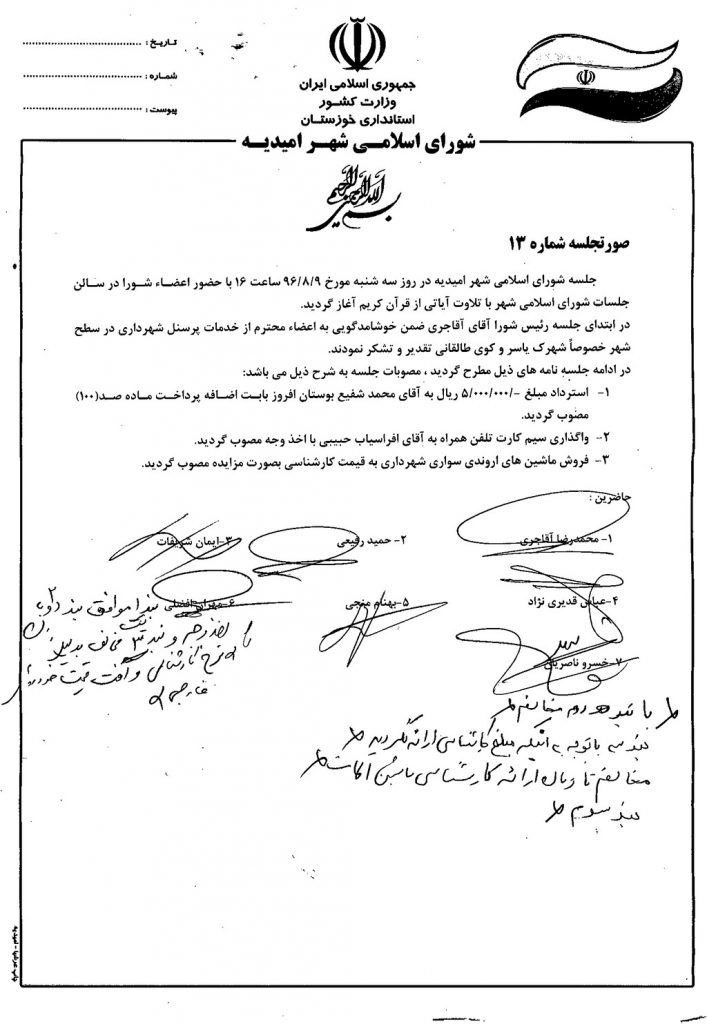 تاریخ :
شماره :
پیوست :
جمهوری اسلامی ایران
وزارت کشور
استانداری خوزستان
شورای اسلامی شهر امیدیه
بسم الله الرحمن الرحیم
صورتجلسه شماره ۱۳
جلسه شورای اسلامی شهر امیدیه در روز سه شنبه مورخ ۹۶/۸/۹ ساعت ۱۶ با حضور اعضاء شورا در سالن
جلسات شورای اسلامی شهر با تلاوت آیاتی از قرآن کریم آغاز گردید.
در ابتدای جلسه رئیس شورا آقای آقاجری ضمن خوشامدگویی به اعضاء محترم از خدمات پرسنل شهرداری در سطح
شهر خصوصاً شهرک یاسر و کوی طالقانی تقدیر و تشکر نمودند.
در ادامه جلسه نامه های ذیل مطرح گردید ، مصوبات جلسه به شرح ذیل می باشد:
۱- استرداد مبلغ -/۵/۰۰۰/۰۰۰ ریال به آقای محمد شفیع بوستان افروز بابت اضافه پرداخت ماده صد(۱۰۰)
مصوب گردید.
۲- واگذاری سیم کارت تلفن همراه به آقای افراسیاب حبیبی با اخذ وجه مصوب گردید.
۳- فروش ماشین های اروندی سواری شهرداری به قیمت کارشناسی بصورت مزایده مصوب گردید.
حاضرین :
۱- محمدرضا آقاجری
۲- حمید رفیعی
۳- ایمان شریفات
۴- عباس قدیری نژاد
۵- بهنام منجی
۶- مهران افضلی
۷- خسرو ناصریان
بند ۱ موافق بند ۲ و
اخذ وجه و بند ۳ مخالف بدلیل
کارشناسی و افت قیمت خودرو
با بند دوم مخالفم
بند سه با توجه به اینکه مبلغ کارشناسی ارائه نگردیده
مخالفم تا زمان ارائه کارشناسی ماشین آلات
بند سوم